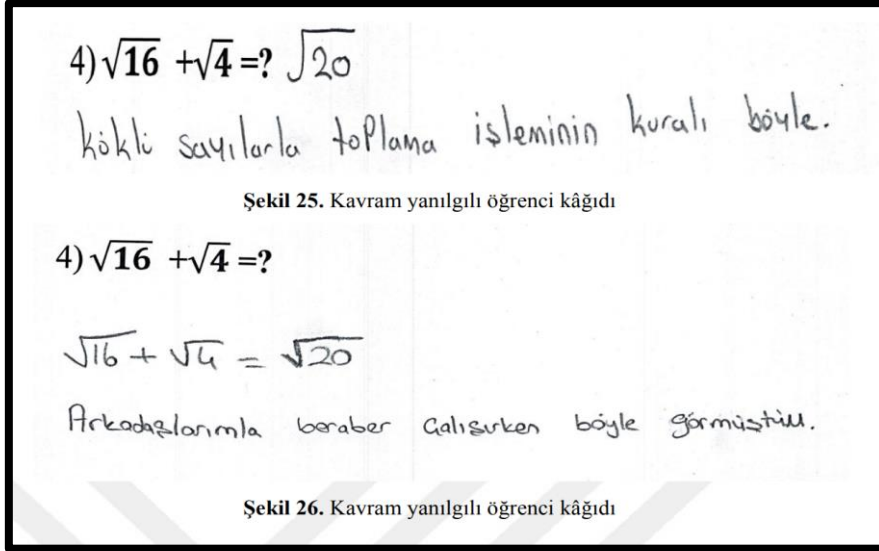 4) √16 +√4 =? √20
köklü sayılarla toplama işleminin kuralı böyle.
Şekil 25. Kavram yanılgılı öğrenci kâğıdı
4) √16 +√4 =?
√16 + √4 = √20
Arkadaşlarımla beraber çalışırken böyle görmüştüm.
Şekil 26. Kavram yanılgılı öğrenci kâğıdı